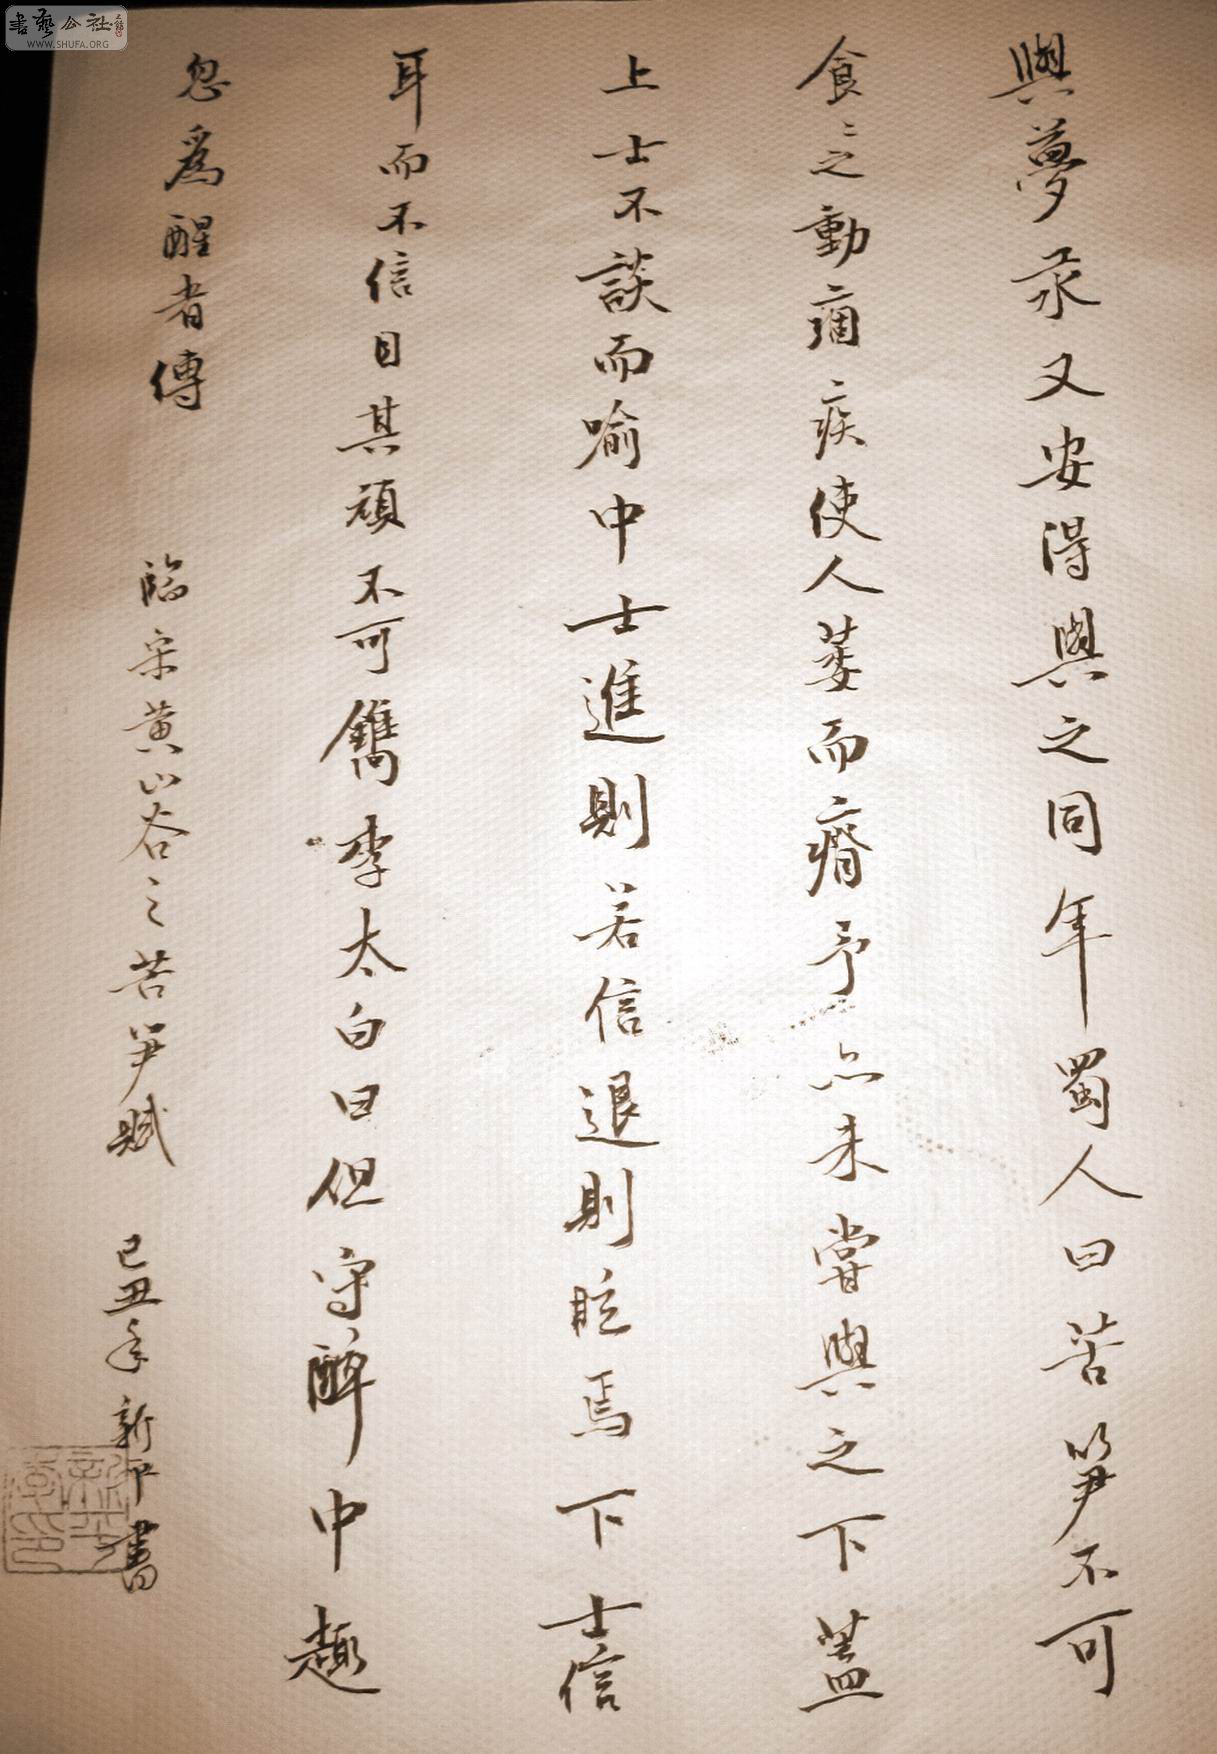 與夢汞又安得與之同年蜀人曰苦笋不可
食〻之動痼疾使人萎而瘠予亦未嘗與之下蓋
上士不談而喻中士進則若信退則眩焉下士信
耳而不信目其頑不可鐫李太白曰但守醉中趣
忽為醒者傳
臨宋黄山谷之苦笋賦 己丑年新平書
書藝公社
WWW.SHUFA.ORG